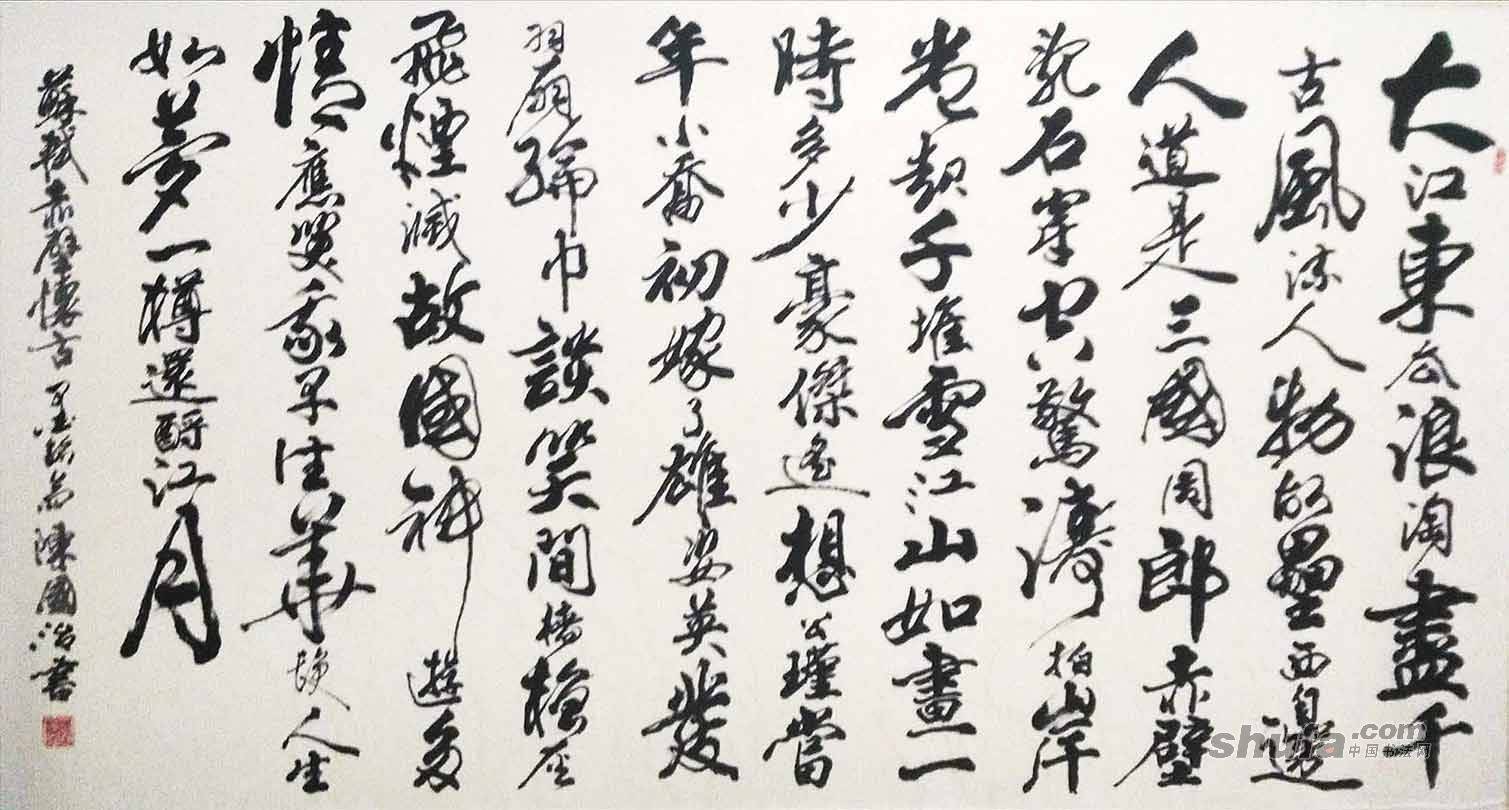 大江東去浪淘盡千
古風流人物故壘西邊
人道是三國周郎赤壁
亂石穿空驚濤拍岸
卷起千堆雪江山如畫一
時多少豪傑遙想公瑾當
年小喬初嫁了雄姿英發
羽扇綸巾談笑間檣櫓灰
飛煙滅故國神遊多
情應笑我早生華髮人生
如夢一樽還酹江月
蘇軾赤壁懷古 陳國治書
shufa.com
中国书法网